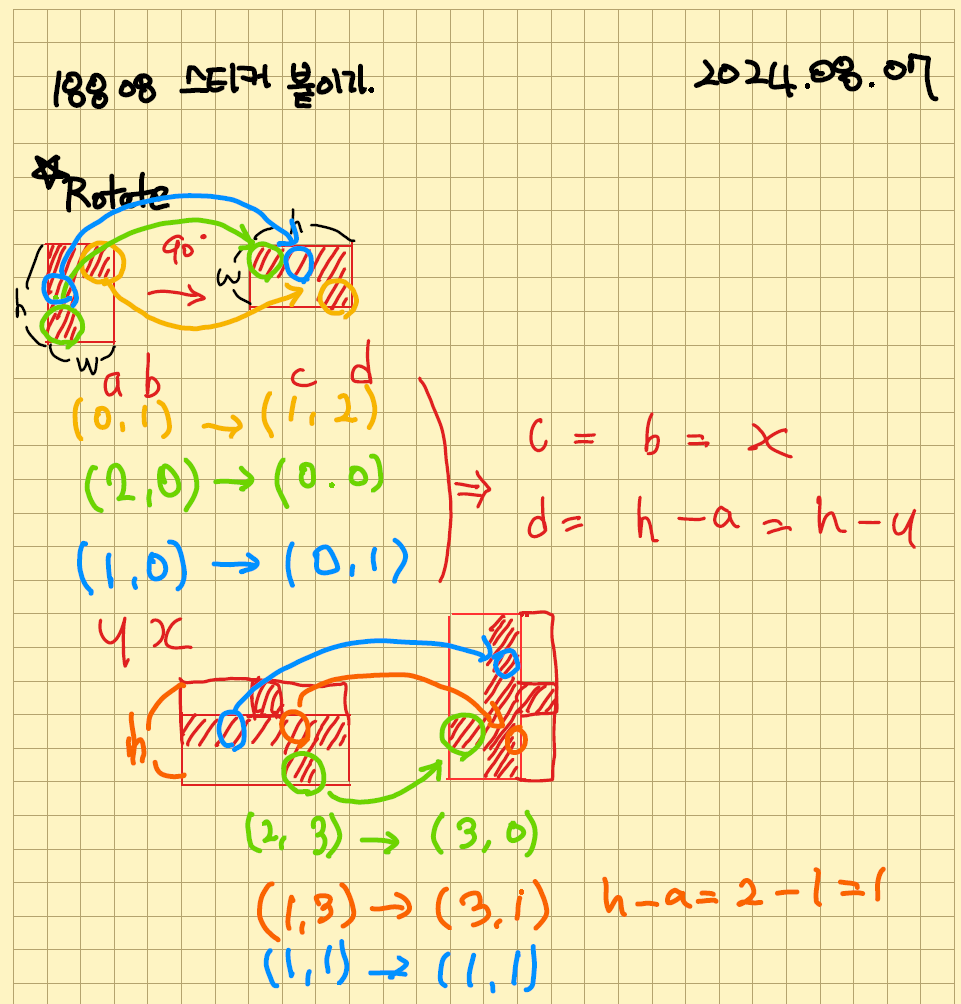 18808 스티커 붙이기.
2024.08.07
☆Rotate
h
90°
h
w
w
a b
c d
(0,1) → (1,2)
(2,0) → (0.0)
(1,0) → (0,1)
⇒
c = b = x
d = h - a = h - y
y x
h
(2,3) → (3,0)
(1,3) → (3,1) h-a=2-1=1
(1,1) → (1,1)